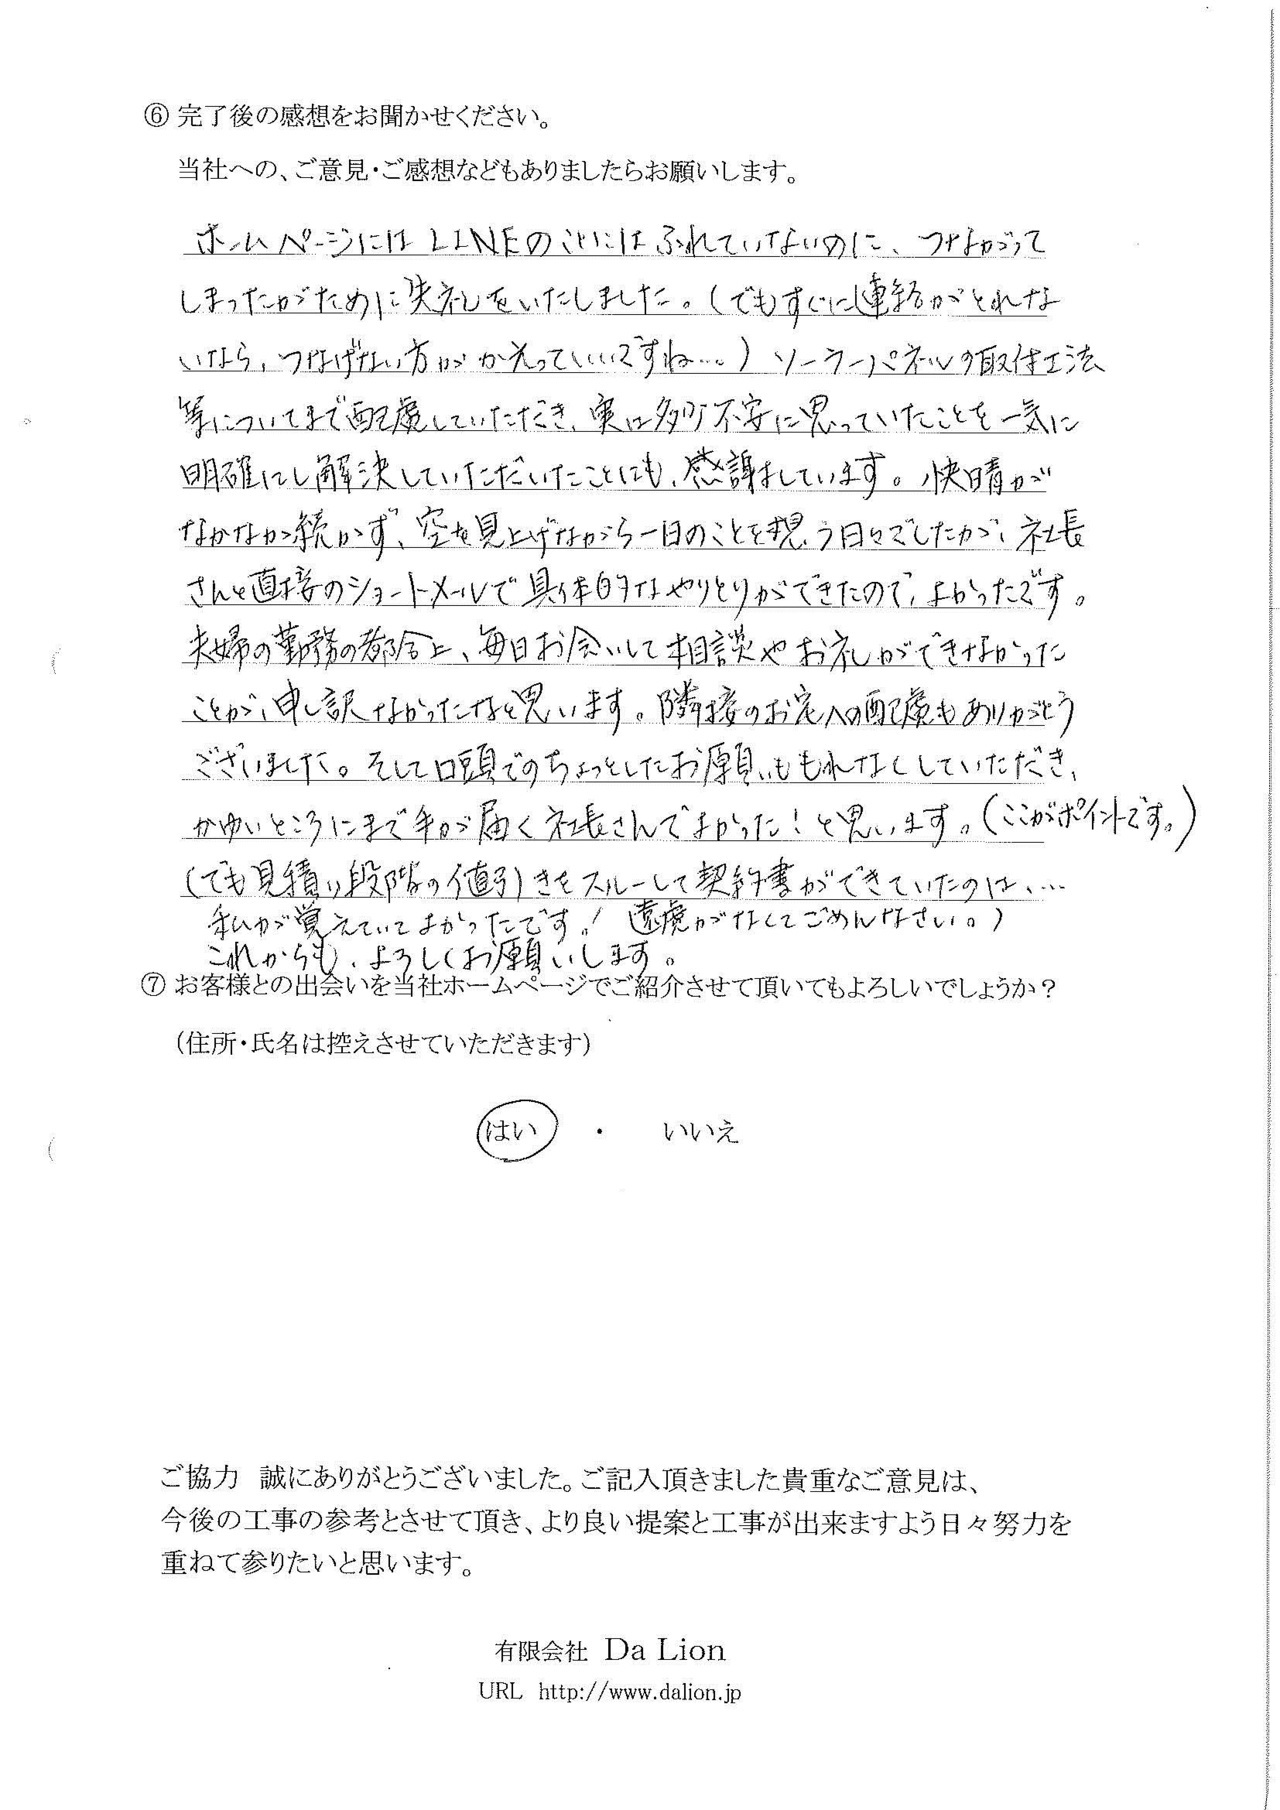 ⑥ 完了後の感想をお聞かせください。
当社への、ご意見・ご感想などもありましたらお願いします。
ホームページにはLINEのことにはふれていないのに、つながって
しまったがために失礼をいたしました。(でもすぐに連絡がとれな
いなら、つなげない方がかえっていいですね…。) ソーラーパネルの取付工法
等についてまで配慮していただき、実は多少不安に思っていたことを一気に
明確にし解決していただいたことにも、感謝をしています。快晴が
なかなか続かず、空を見上げながら一日のことを想う日々でしたが、社長
さんと直接のショートメールで具体的なやりとりができたので、よかったです。
夫婦の勤務の都合上、毎日お会いして相談やお礼ができなかった
ことが、申し訳なかったなと思います。隣接のお宅への配慮もありがとう
ございました。そして口頭でのちょっとしたお願いももれなくしていただき、
かゆいところにまで手が届く社長さんでよかった!と思います。(ここがポイントです。)
(でも見積り段階の値引きをスルーして契約書ができていたのは、…
私が覚えていてよかったです! 遠慮がなくてごめんなさい。)
これからも、よろしくお願いします。
⑦ お客様との出会いを当社ホームページでご紹介させて頂いてもよろしいでしょうか?
(住所・氏名は控えさせていただきます)
はい ・ いいえ
ご協力 誠にありがとうございました。ご記入頂きました貴重なご意見は、
今後の工事の参考とさせて頂き、より良い提案と工事が出来ますよう日々努力を
重ねて参りたいと思います。
有限会社 Da Lion
URL http://www.dalion.jp